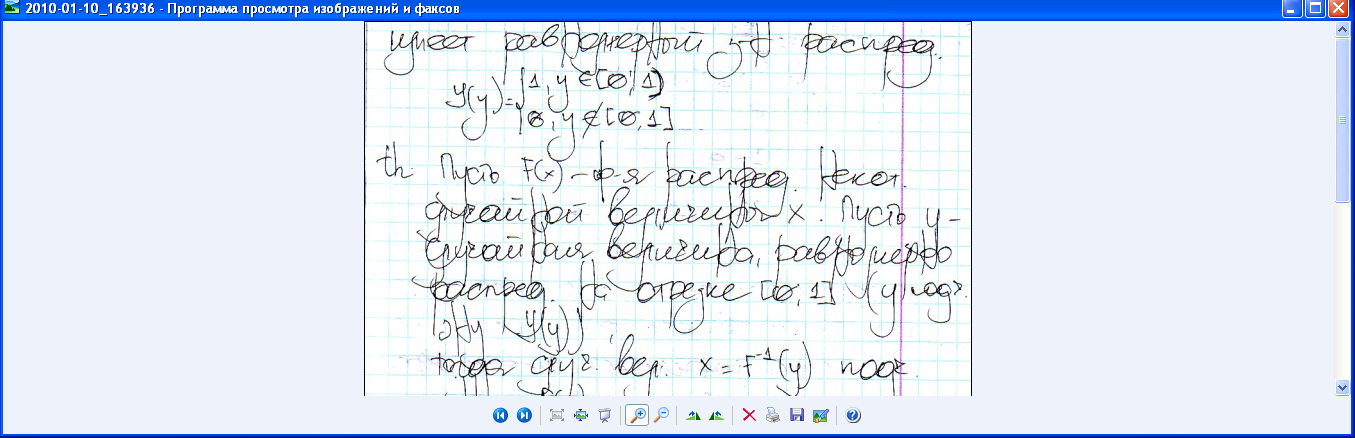 2010-01-10_163936 - Программа просмотра изображений и факсов
имеет равномерный з-н распред.
y(y)= 1, y ∈ [0, 1)
0, y ∉ [0, 1]
th. Пусть F(x) - ф-я распред. некот.
случайной величины x. Пусть y -
случайная величина, равномерно
распред. на отрезке [0, 1] (y подч.
з-ну y(y))
тогда случ. вел. x = F⁻¹(y) подч.